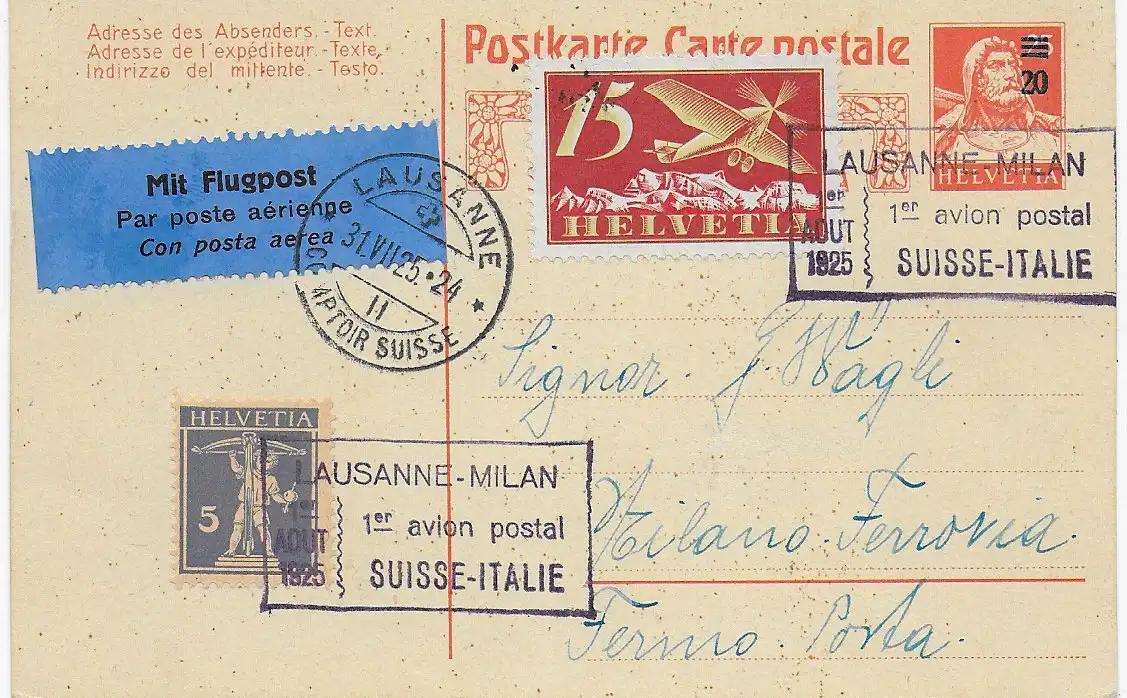 Adresse des Absenders. - Text.
Adresse de l'expéditeur. - Texte.
Indirizzo del mittente. - Testo.
Postkarte Carte postale
15
HELVETIA
20
HELVETIA
Mit Flugpost
Par poste aérienne
Con posta aerea
LAUSANNE
31.VII.25.24
II
COMPTOIR SUISSE
LAUSANNE-MILAN
1er AOUT 1925
1er avion postal
SUISSE-ITALIE
Signor. J. Wägli
Milano. Ferrovia.
Fermo. Posta.
HELVETIA
5
LAUSANNE-MILAN
1er AOUT 1925
1er avion postal
SUISSE-ITALIE